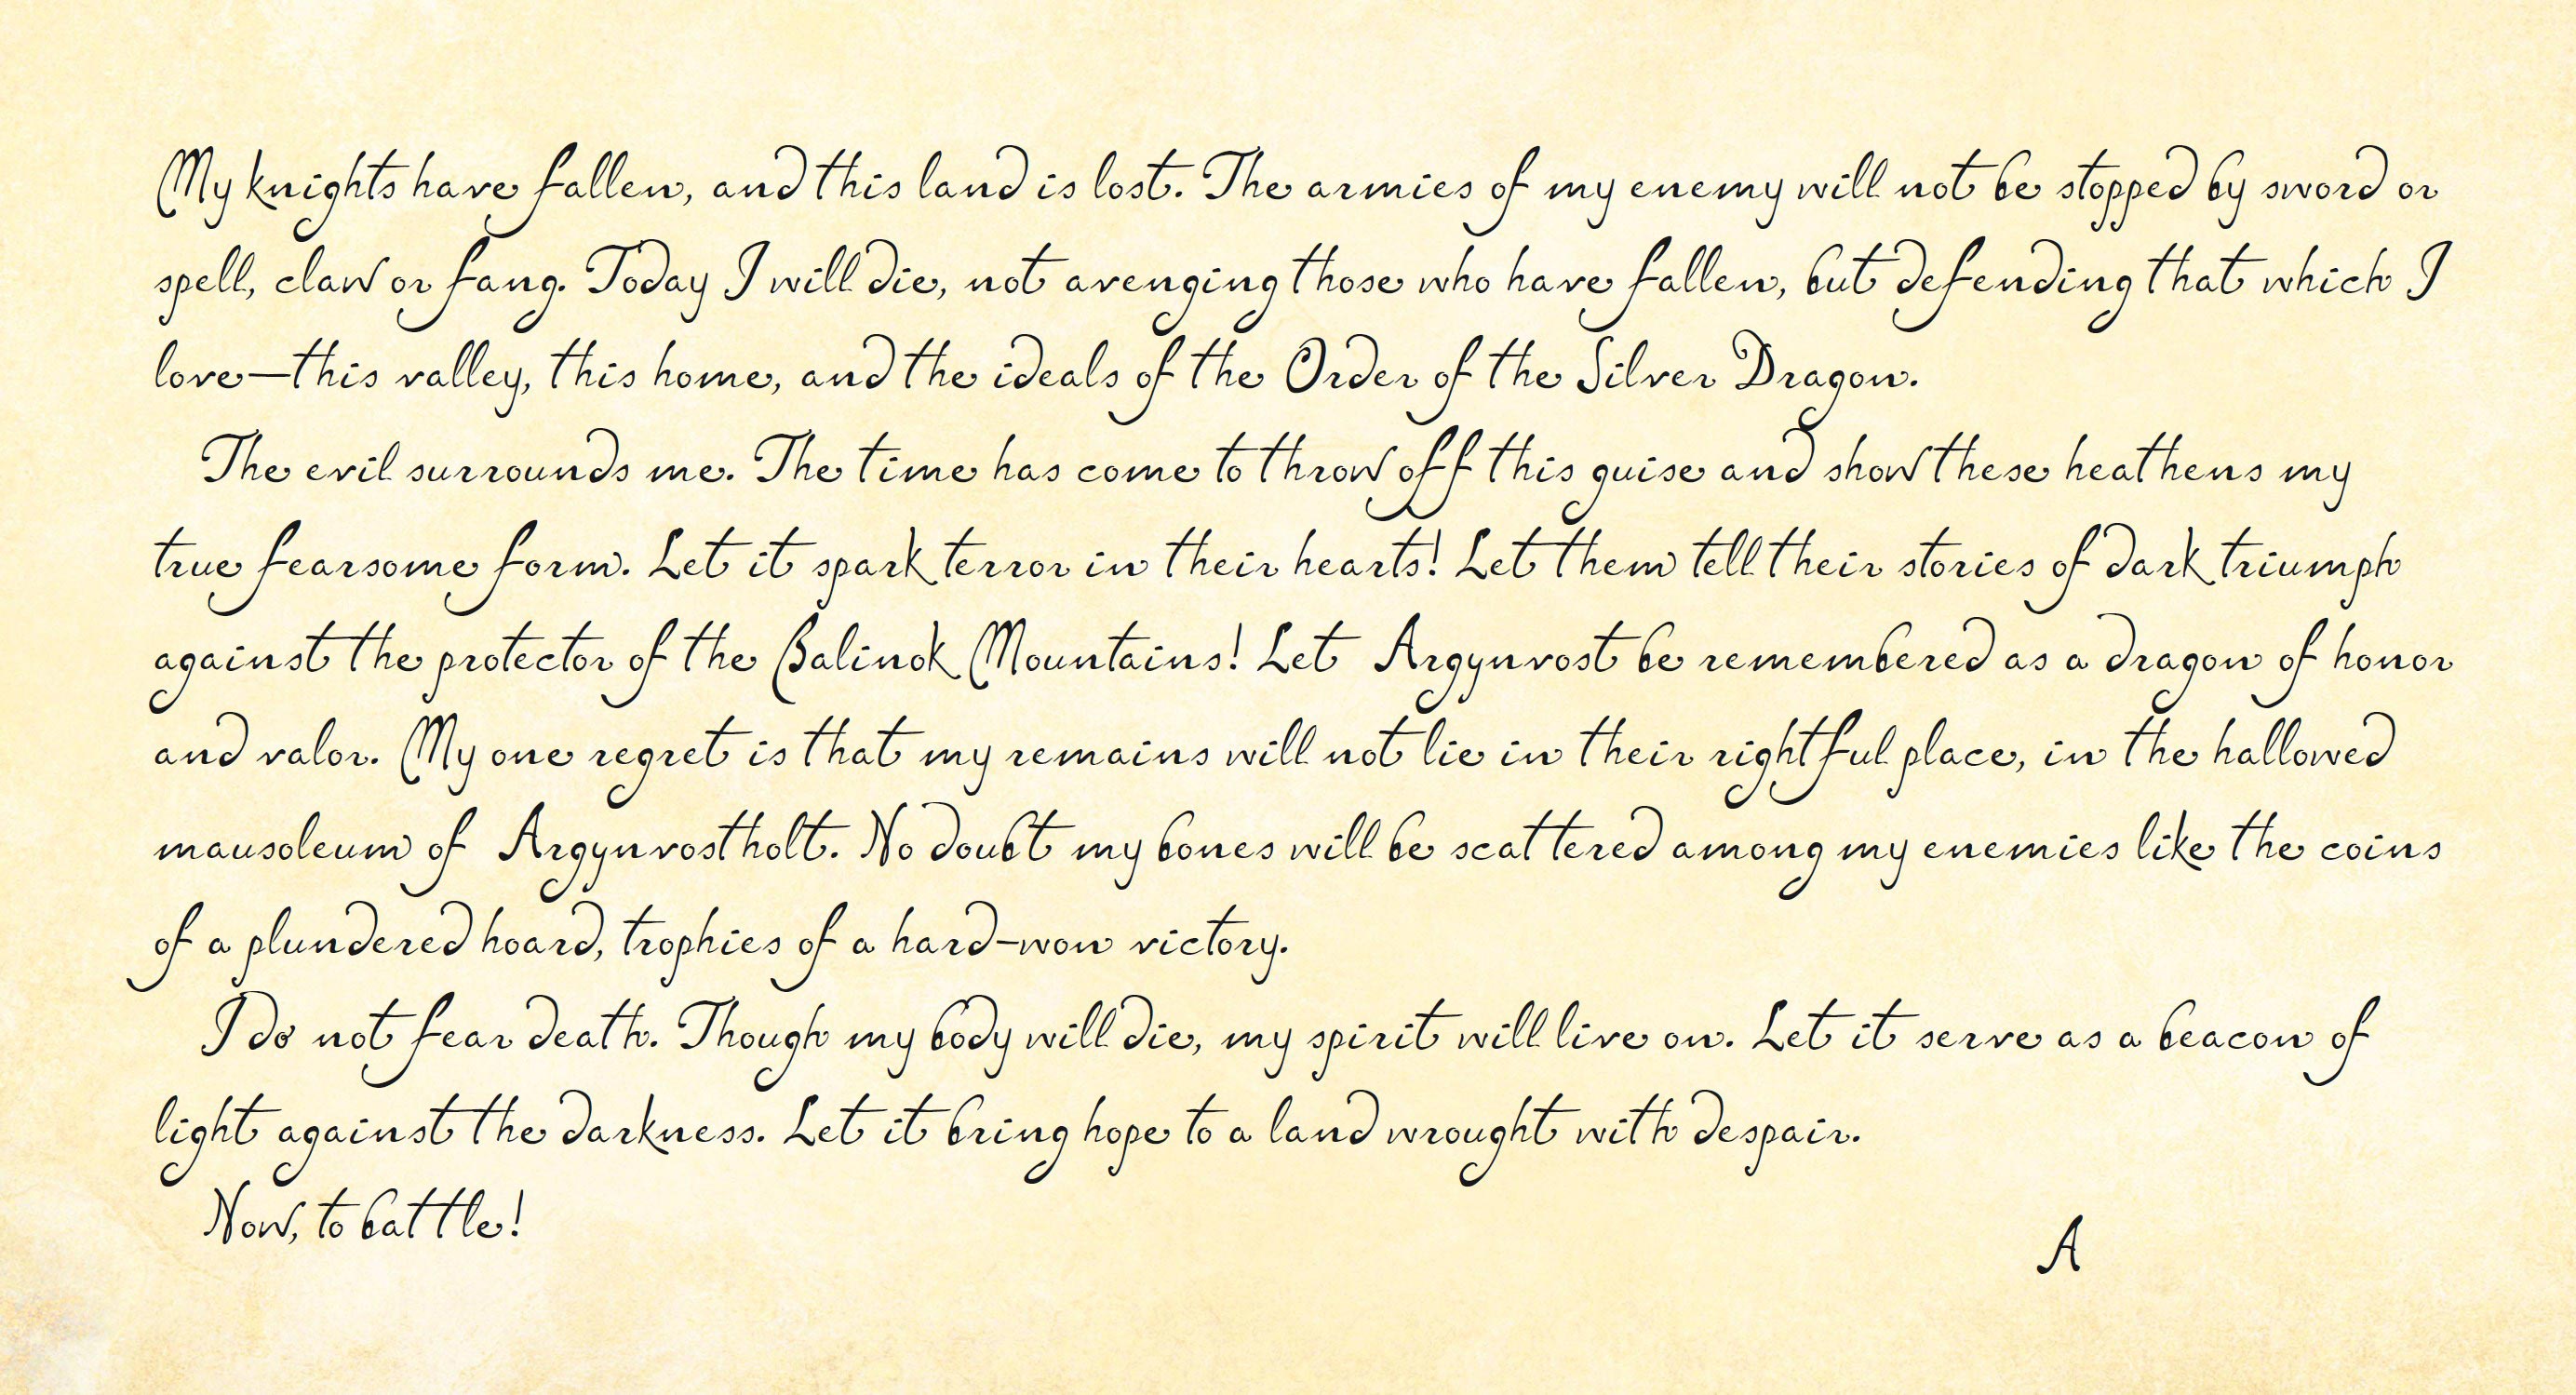 My knights have fallen, and this land is lost. The armies of my enemy will not be stopped by sword or
spell, claw or fang. Today I will die, not avenging those who have fallen, but defending that which I
love—this valley, this home, and the ideals of the Order of the Silver Dragon.
The evil surrounds me. The time has come to throw off this guise and show these heathens my
true fearsome form. Let it spark terror in their hearts! Let them tell their stories of dark triumph
against the protector of the Balinok Mountains! Let Argynvost be remembered as a dragon of honor
and valor. My one regret is that my remains will not lie in their rightful place, in the hallowed
mausoleum of Argynvostholt. No doubt my bones will be scattered among my enemies like the coins
of a plundered hoard, trophies of a hard-won victory.
I do not fear death. Though my body will die, my spirit will live on. Let it serve as a beacon of
light against the darkness. Let it bring hope to a land wrought with despair.
Now, to battle!
A